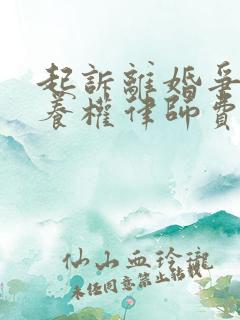 起訴離婚爭
養權律師費
仙山血玲瓏
未经同意禁止转载